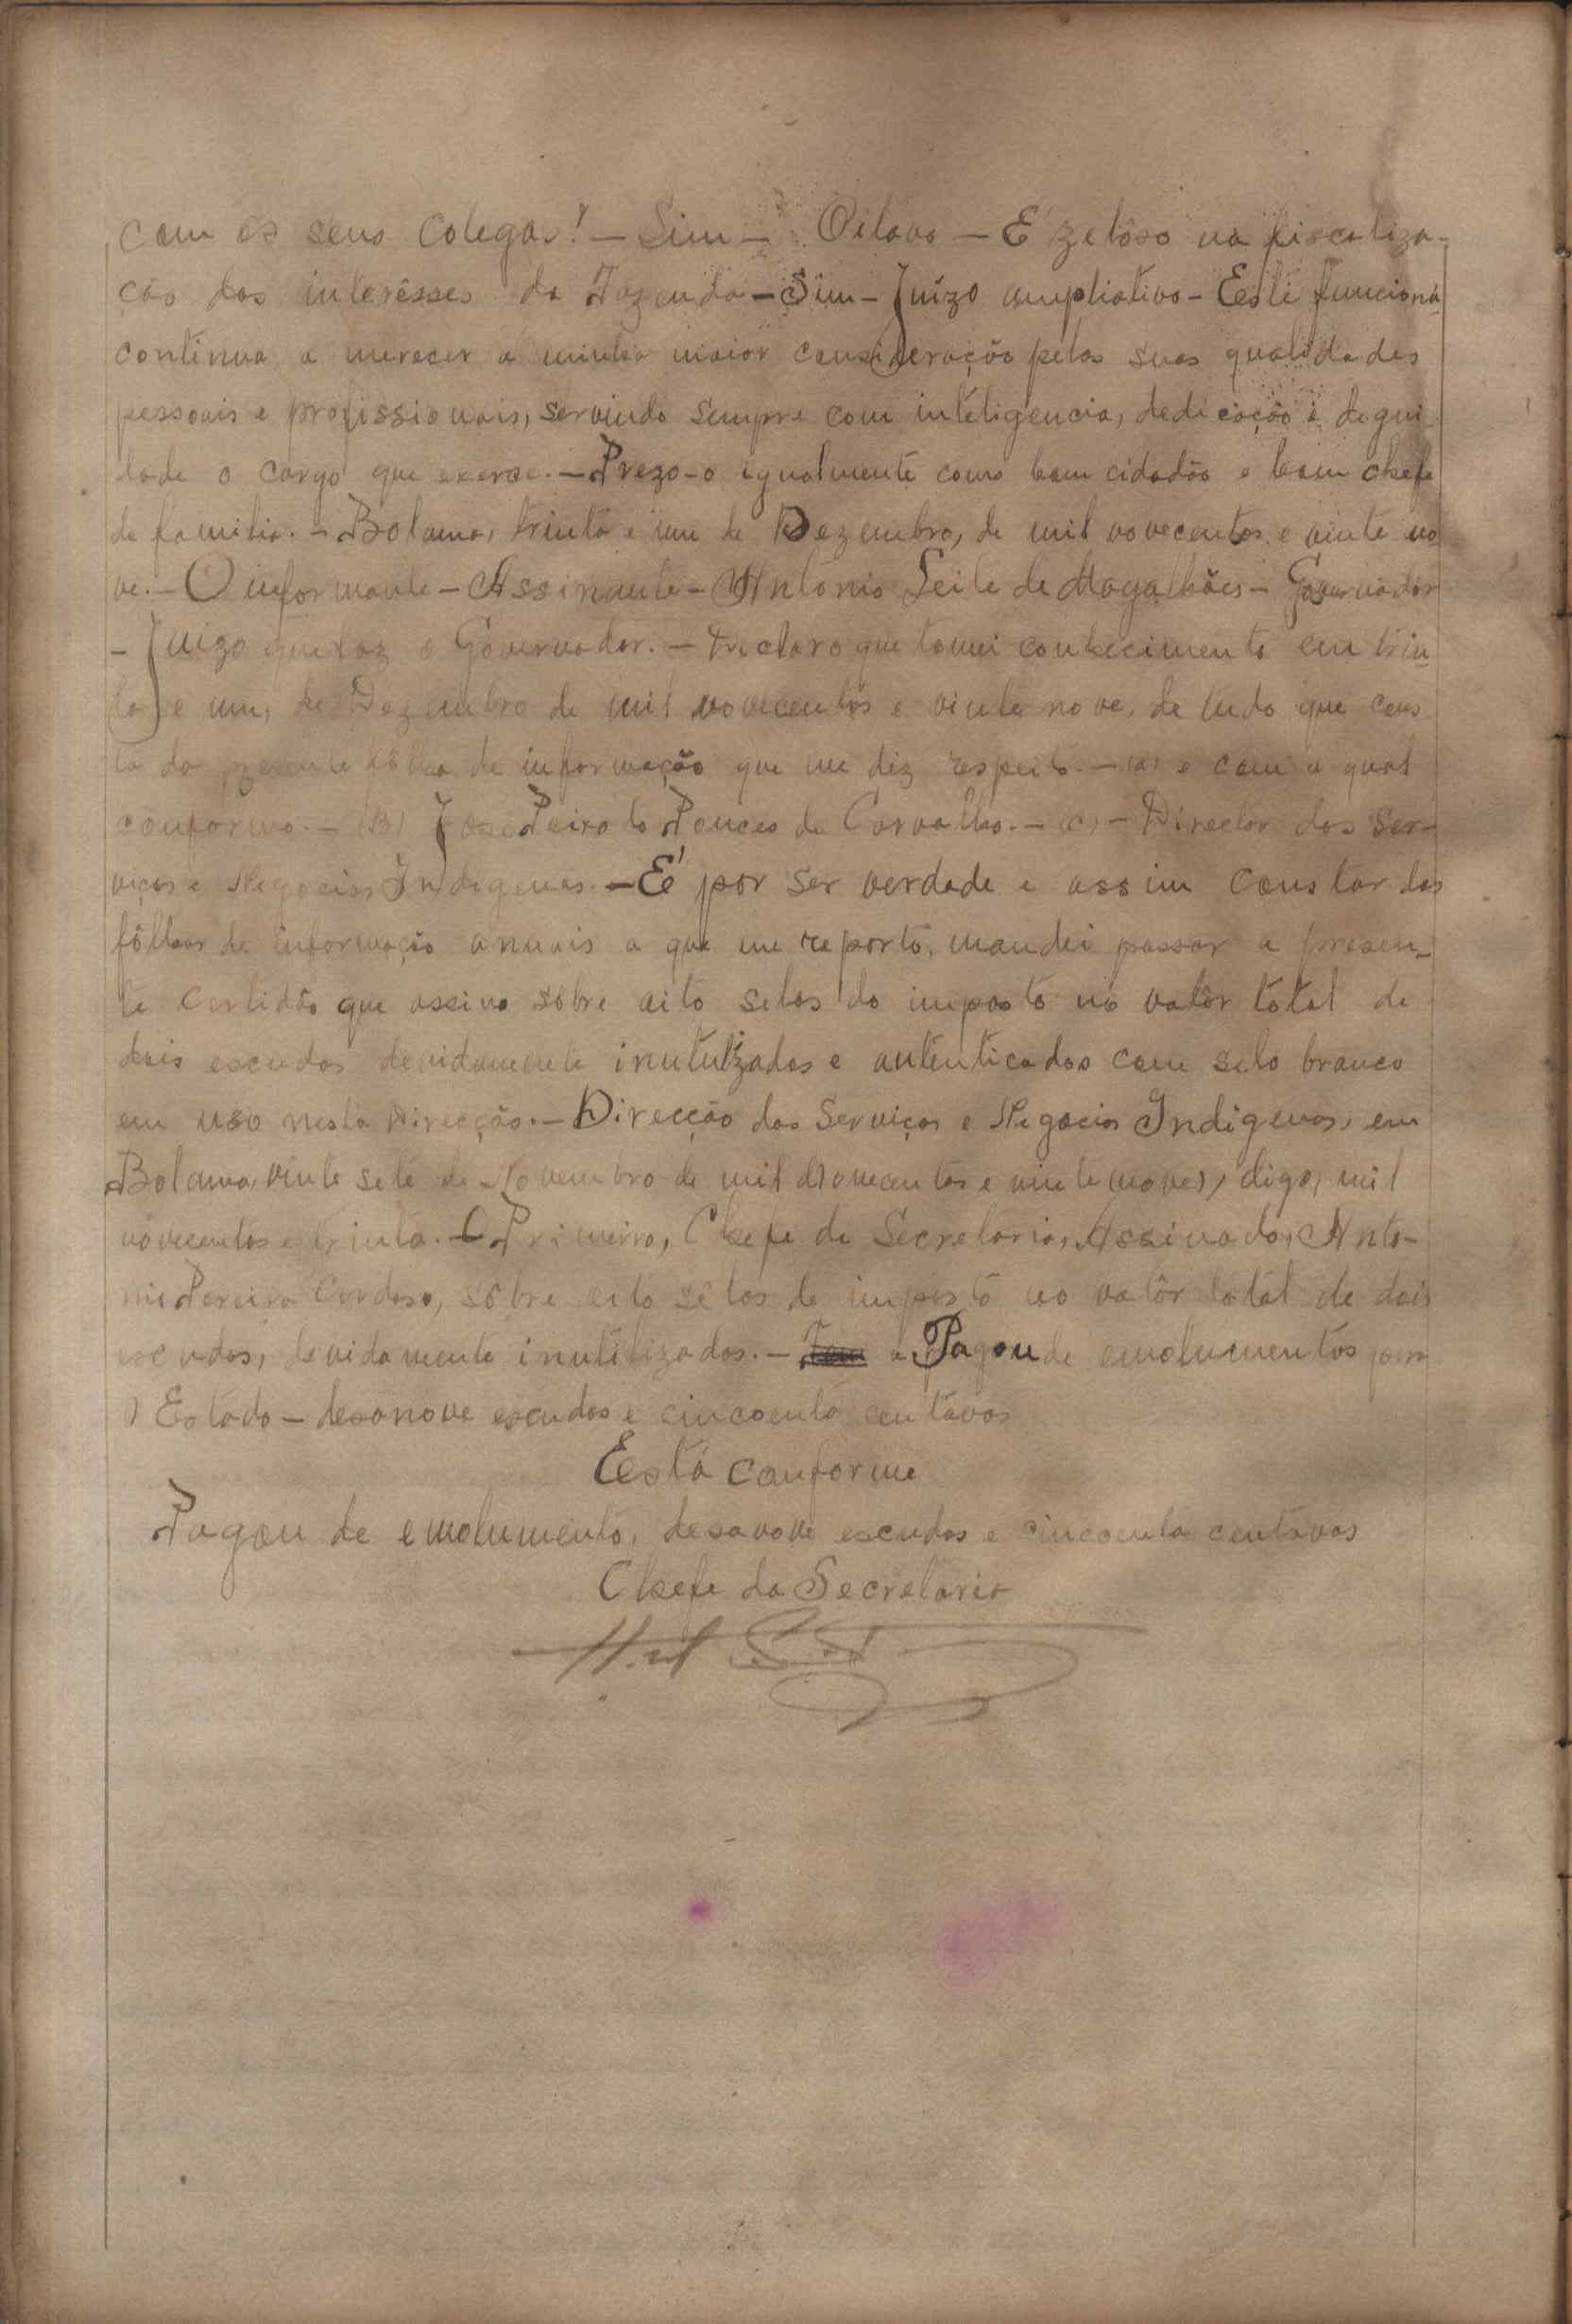 com os seus colegas? — Sim — Oitavo — É zelôso na fiscaliza-
ção dos interêsses da Fazenda — Sim — Juízo ampliativo — Este funcioná
continua a merecer a minha maior consideração pelas suas qualidades
pessoais e profissionais, servindo sempre com inteligencia, dedicação e digni
dade o cargo que exerce. — Prezo-o igualmente como bom cidadão e bom chefe
de familia. — Bolama, trinta e um de Dezembro, de mil novecentos e vinte no
ve. — O informante — Assinante — António Leite de Magalhães — Governador
— Juizo que faz o Governador. — Declaro que tomei conhecimento em trin
ta e um, de Dezembro de mil novecentos e vinte nove, de tudo que cons
ta da presente fôlha de informação que me diz respeito. — (a) e com a qual
conformo. — (B) José Peixoto Ponces de Carvalho. — (c) — Director dos Ser-
viços e Negocios Indigenas. — É por ser verdade e assim constar das
fôlhas de informação anuais a que me reporto, mandei passar a presen-
te certidão que assino sôbre oito selos do imposto no valôr total de
dois escudos devidamente inutulizados e autênticados com selo branco
em uso nesta Direcção. — Direcção dos Serviços e Negocios Indigenas, em
Bolama, vinte sete de Novembro de mil novecentos e vinte (nove), digo, mil
novecentos e trinta. — O Primeiro, Chefe de Secretaria, Assinado, Anto-
nio Pereira Cardoso, sôbre oito sêlos de imposto no valôr total de dois
escudos, devidamente inutilizados. — a Pagou de emolumentos para
o Estado — desanove escudos e cincoenta centavos
Está conforme
Pagou de emolumento, desanove escudos e cincoenta centavos
Chefe da Secretaria